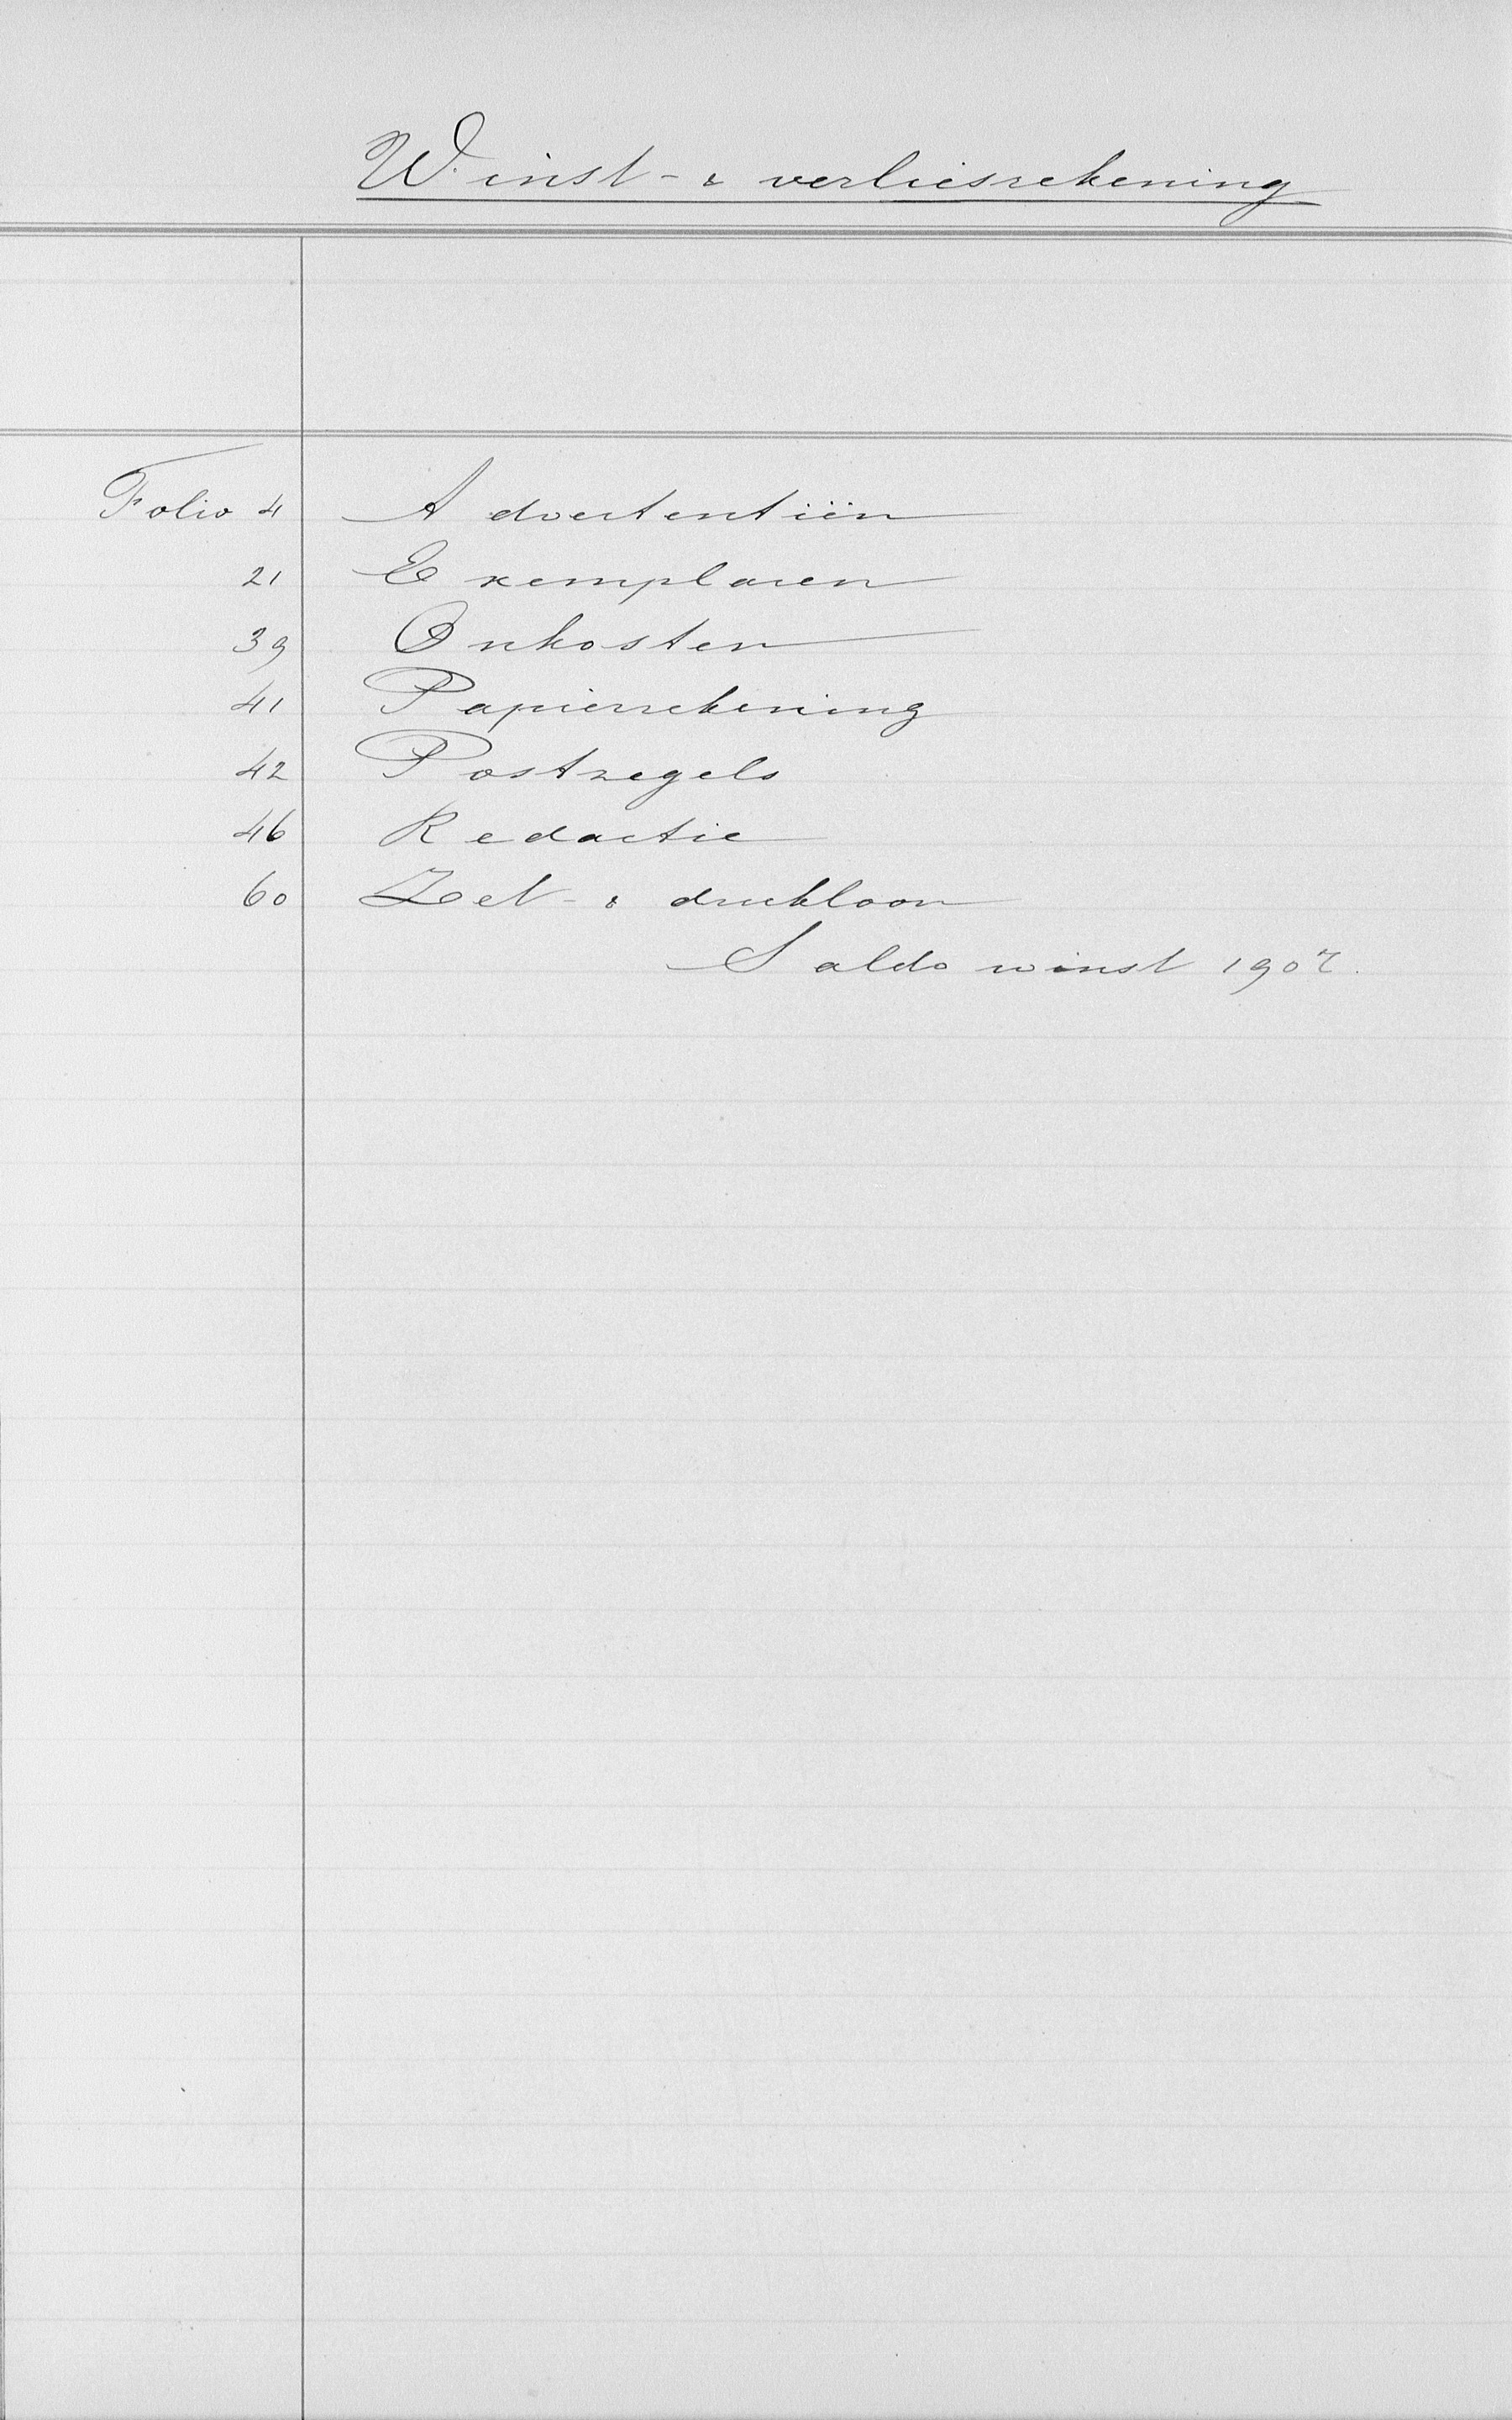 Winst- & verliesrekening
Folio 4 Advertentiën
21 Exemplaren
39 Onkosten
41 Papierrekening
42 Postzegels
46 Redactie
60 Zet- & drukloon
Saldo winst 1907.